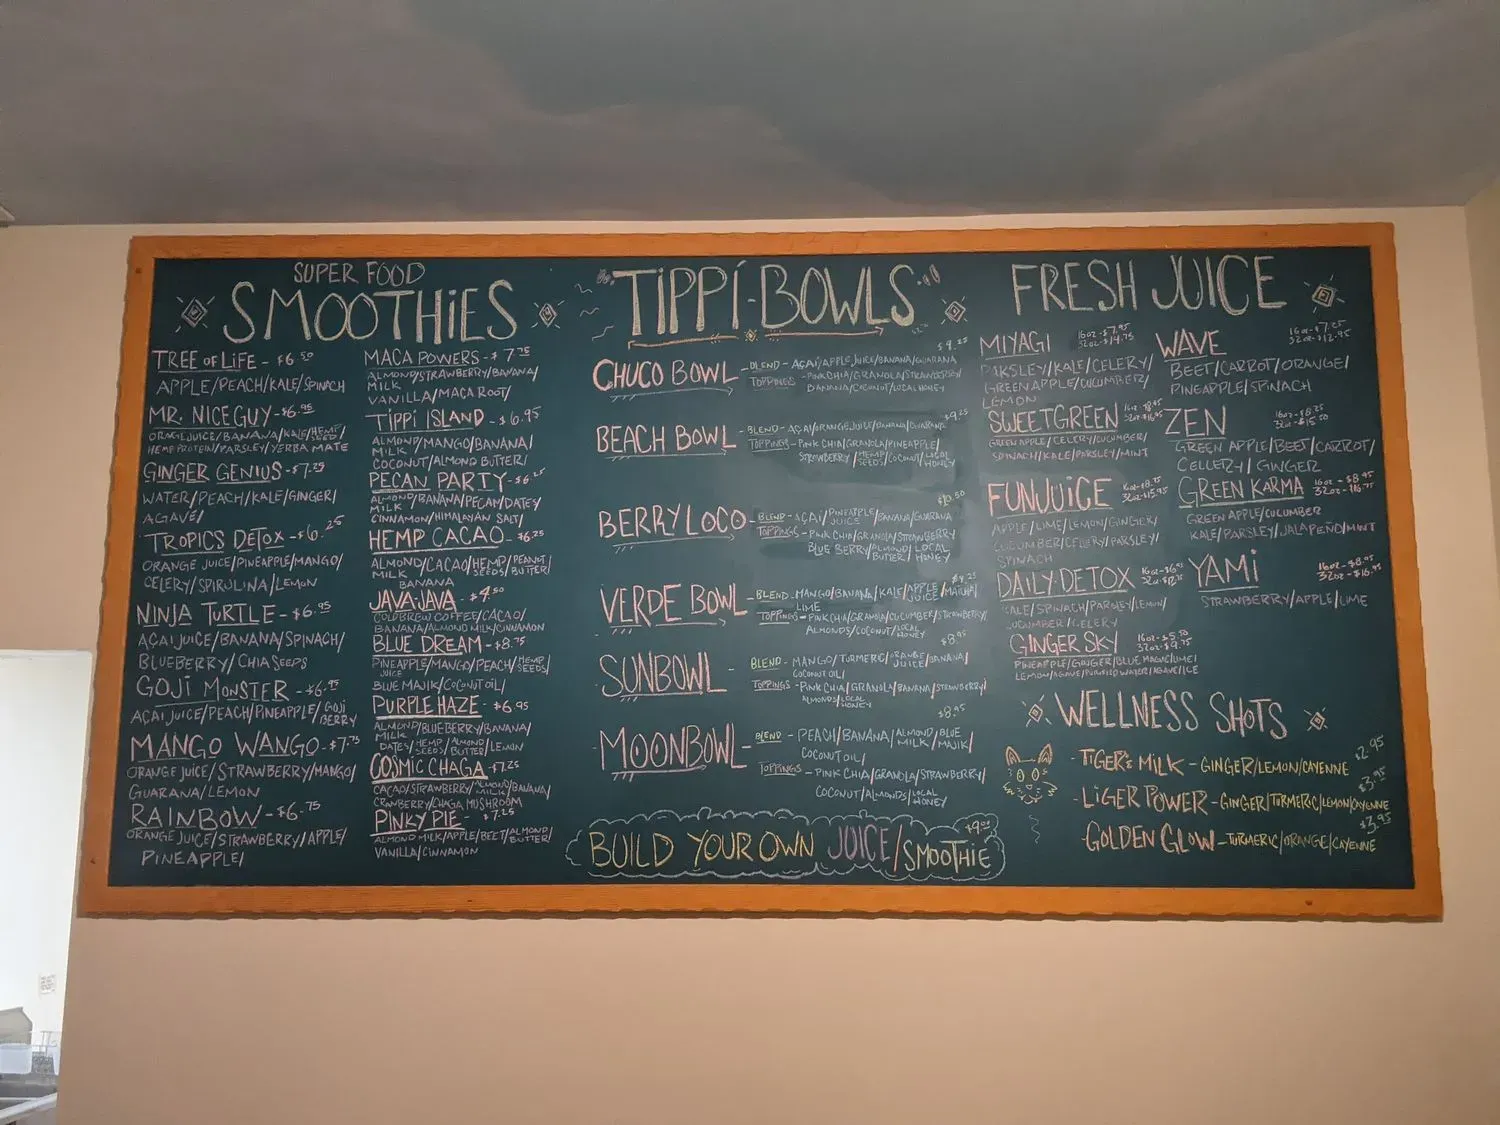 SUPER FOOD
SMOOTHiES
TREE OF LiFE - $6.50
APPLE/PEACH/KALE/SPINACH
MR. NICE GUY - $6.95
ORANGE JUICE/BANANA/KALE/HEMP SEED/
HEMP PROTEIN/PARSLEY/YERBA MATE
GINGER GENIUS - $7.25
WATER/PEACH/KALE/GINGER/
AGAVE/
TROPICS DETOX - $6.25
ORANGE JUICE/PINEAPPLE/MANGO/
CELERY/SPIRULINA/LEMON
NINJA TURTLE - $6.95
AÇAI JUICE/BANANA/SPINACH/
BLUEBERRY/CHIA SEEDS
GOJI MONSTER - $6.95
AÇAI JUICE/PEACH/PINEAPPLE/GOJI BERRY
MANGO WANGO - $7.75
ORANGE JUICE/STRAWBERRY/MANGO/
GUARANA/LEMON
RAINBOW - $6.75
ORANGE JUICE/STRAWBERRY/APPLE/
PINEAPPLE/
MACA POWERS - $7.75
ALMOND MILK/STRAWBERRY/BANANA/
VANILLA/MACA ROOT/
TIPPI ISLAND - $6.95
ALMOND MILK/MANGO/BANANA/
COCONUT/ALMOND BUTTER/
PECAN PARTY - $6.25
ALMOND MILK/BANANA/PECAN/DATES/
CINNAMON/HIMALAYAN SALT/
HEMP CACAO - $6.25
ALMOND MILK/CACAO/HEMP SEEDS/PEANUT BUTTER/
BANANA
JAVA-JAVA - $4.50
COLDBREW COFFEE/CACAO/
BANANA/ALMOND MILK/CINNAMON
BLUE DREAM - $8.75
PINEAPPLE JUICE/MANGO/PEACH/HEMP SEEDS/
BLUE MAJIK/COCONUT OIL/
PURPLE HAZE - $6.95
ALMOND MILK/BLUEBERRY/BANANA/
DATES/HEMP SEEDS/ALMOND BUTTER/LEMON
COSMIC CHAGA - $7.25
CACAO/STRAWBERRY/ALMOND MILK/BANANA/
CRANBERRY/CHAGA MUSHROOM
PINKY PIE - $7.25
ALMOND MILK/APPLE/BEET/ALMOND BUTTER/
VANILLA/CINNAMON
"TIPPÍ-BOWLS"
CHUCO BOWL - $9.25
BLEND - AÇAI/APPLE JUICE/BANANA/GUARANA
TOPPINGS - PINK CHIA/GRANOLA/STRAWBERRY/
BANANA/COCONUT/LOCAL HONEY
BEACH BOWL - $9.25
BLEND - AÇAI/ORANGE JUICE/BANANA/GUARANA
TOPPINGS - PINK CHIA/GRANOLA/PINEAPPLE/
STRAWBERRY/HEMP SEEDS/COCONUT/LOCAL HONEY
BERRY LOCO - $10.50
BLEND - AÇAI/PINEAPPLE JUICE/BANANA/GUARANA
TOPPINGS - PINK CHIA/GRANOLA/STRAWBERRY
BLUE BERRY/ALMOND BUTTER/LOCAL HONEY
VERDE BOWL - $9.25
BLEND - MANGO/BANANA/KALE/APPLE JUICE/MATCHA/
LIME
TOPPINGS - PINK CHIA/GRANOLA/CUCUMBER/STRAWBERRY/
ALMONDS/COCONUT/LOCAL HONEY
SUNBOWL - $8.95
BLEND - MANGO/TURMERIC/ORANGE JUICE/BANANA/
COCONUT OIL/
TOPPINGS - PINK CHIA/GRANOLA/BANANA/STRAWBERRY/
ALMONDS/LOCAL HONEY
MOONBOWL - $8.95
BLEND - PEACH/BANANA/ALMOND MILK/BLUE MAJIK/
COCONUT OIL/
TOPPINGS - PINK CHIA/GRANOLA/STRAWBERRY/
COCONUT/ALMONDS/LOCAL HONEY
BUILD YOUR OWN JUICE/SMOOTHIE $9.00
FRESH JUICE
MIYAGI 16oz - $7.95
32oz - $14.75
PARSLEY/KALE/CELERY/
GREEN APPLE/CUCUMBER/
LEMON
SWEETGREEN
GREEN APPLE/CELERY/CUCUMBER/
SPINACH/KALE/PARSLEY/MINT
FUNJUICE 16oz - $8.75
32oz - $15.95
APPLE/LIME/LEMON/GINGER/
CUCUMBER/CELERY/PARSLEY/
SPINACH
DAILY DETOX
KALE/SPINACH/PARSLEY/LEMON/
CUCUMBER/CELERY
GINGER SKY 16oz - $5.50
32oz - $9.75
PINEAPPLE/GINGER/BLUE MAGIC/LIME/
LEMON/AGAVE/PURIFIED WATER/AGAVE/ICE
WAVE 16oz - $7.25
32oz - $12.95
BEET/CARROT/ORANGE/
PINEAPPLE/SPINACH
ZEN 16oz - $8.25
32oz - $15.50
GREEN APPLE/BEET/CARROT/
CELLERY/GINGER
GREEN KARMA 16oz - $8.95
32oz - $16.75
GREEN APPLE/CUCUMBER
KALE/PARSLEY/JALAPEÑO/MINT
YAMi 16oz - $8.95
32oz - $16.95
STRAWBERRY/APPLE/LIME
WELLNESS SHOTS
- TIGER'S MILK - GINGER/LEMON/CAYENNE $2.95
- LIGER POWER - GINGER/TURMERIC/LEMON/CAYENNE $3.95
- GOLDEN GLOW - TURMERIC/ORANGE/CAYENNE $3.95